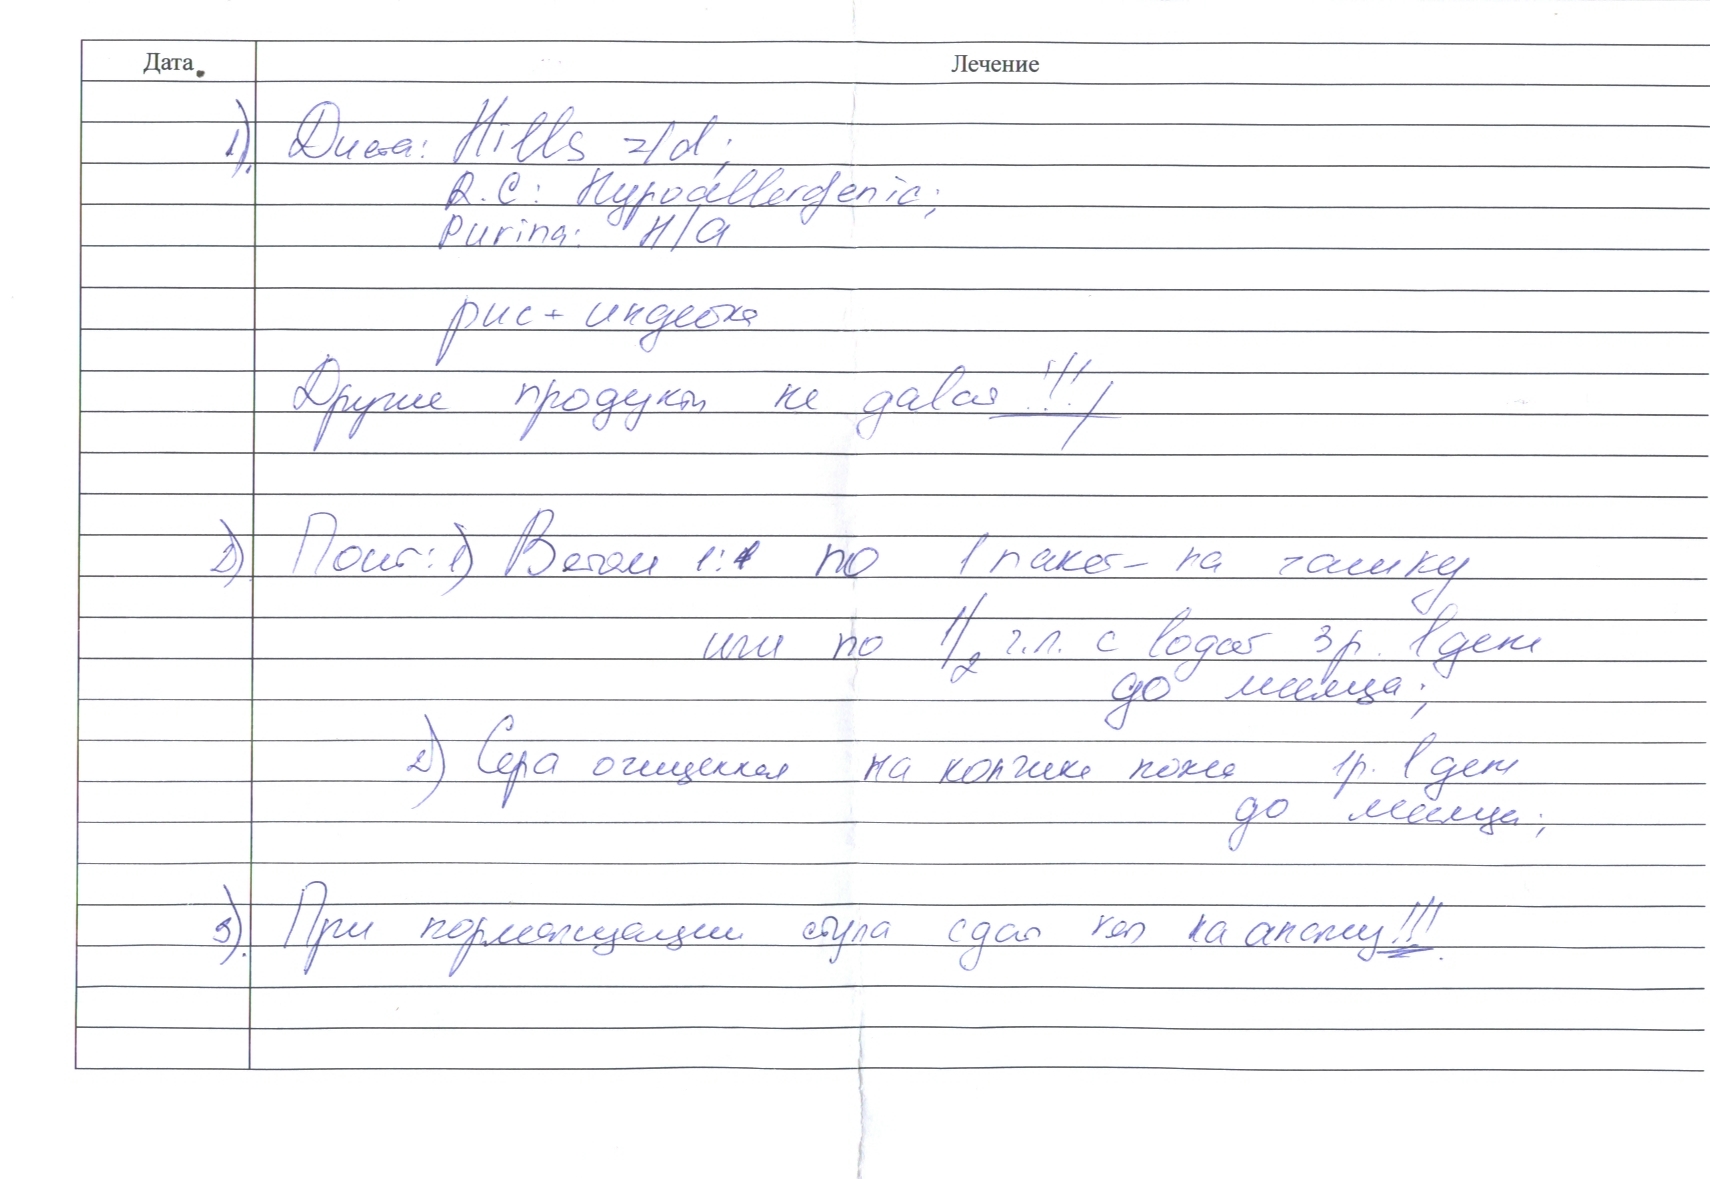 Дата
Лечение
1). Диета: Hills z/d;
R.C: Hypoallergenic;
Purina: H/A
рис + индейка
Другие продукты не давать!!!
2). Поить: 1) Ветом 1:1 по 1 пакет- на
или по 1/2 ч.л. с водой 3 р. в день
до месяца;
2) Сера очищенная на кончике ножа 1р. в день
до месяца;
3). При нормализации стула сдать кал на анализ!!!